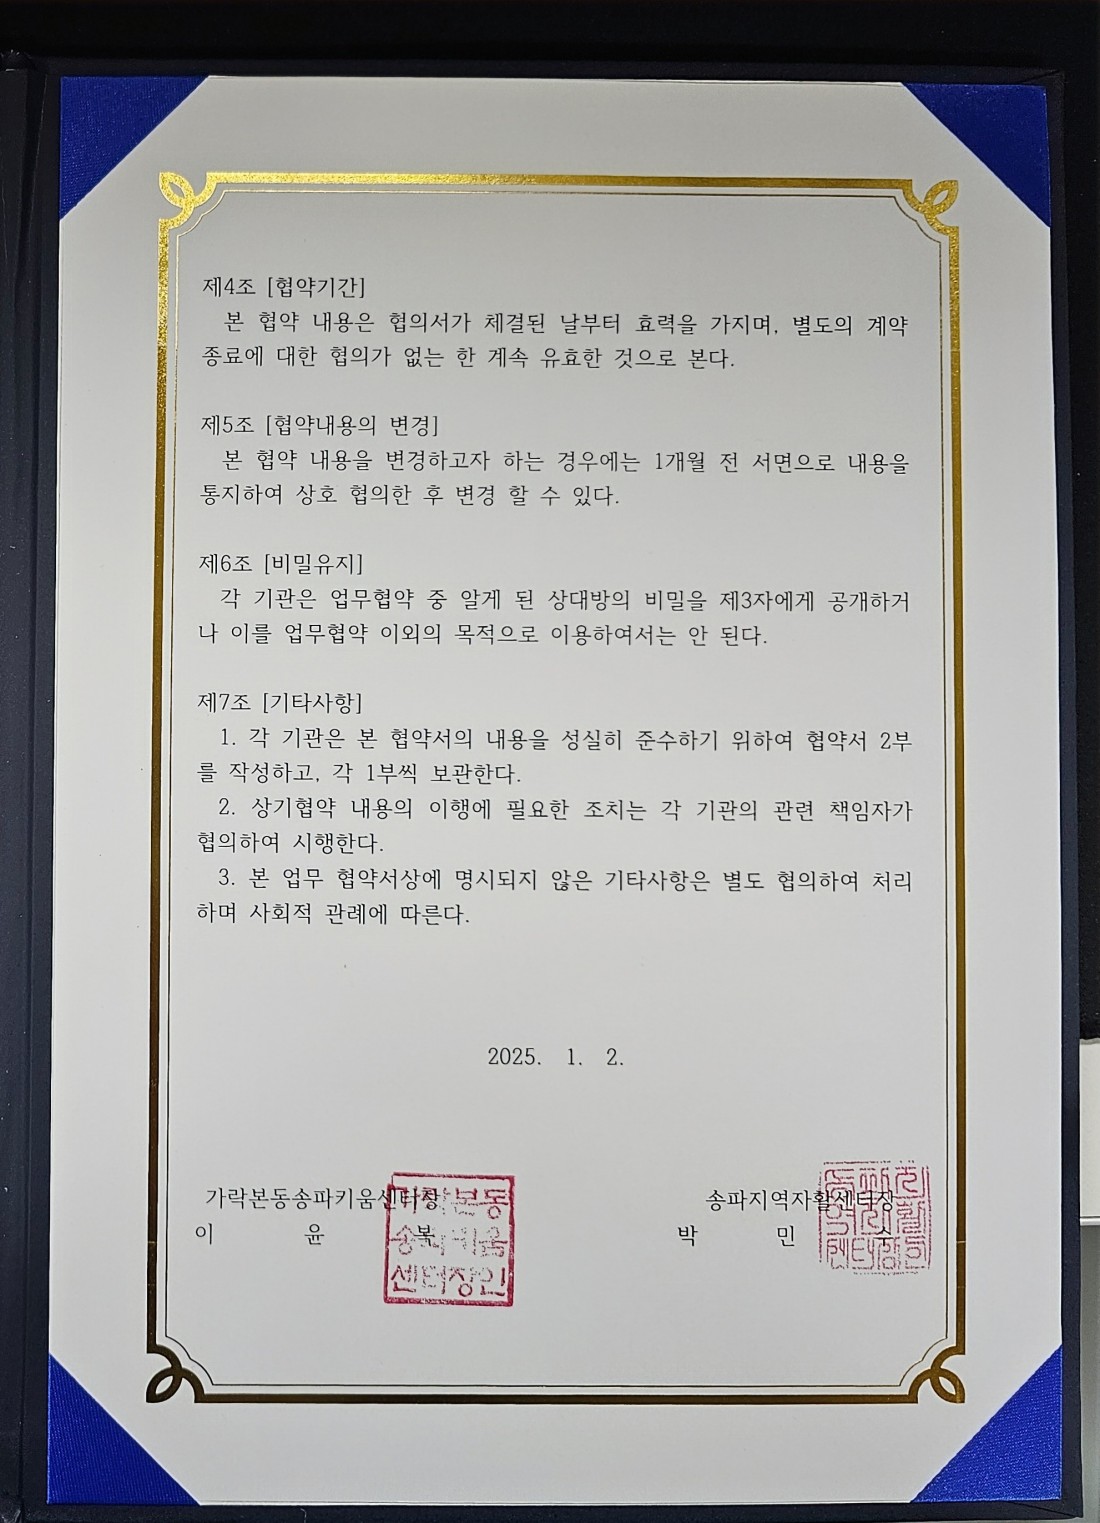 제4조 [협약기간]
본 협약 내용은 협의서가 체결된 날부터 효력을 가지며, 별도의 계약
종료에 대한 협의가 없는 한 계속 유효한 것으로 본다.
제5조 [협약내용의 변경]
본 협약 내용을 변경하고자 하는 경우에는 1개월 전 서면으로 내용을
통지하여 상호 협의한 후 변경 할 수 있다.
제6조 [비밀유지]
각 기관은 업무협약 중 알게 된 상대방의 비밀을 제3자에게 공개하거
나 이를 업무협약 이외의 목적으로 이용하여서는 안 된다.
제7조 [기타사항]
1. 각 기관은 본 협약서의 내용을 성실히 준수하기 위하여 협약서 2부
를 작성하고, 각 1부씩 보관한다.
2. 상기협약 내용의 이행에 필요한 조치는 각 기관의 관련 책임자가
협의하여 시행한다.
3. 본 업무 협약서상에 명시되지 않은 기타사항은 별도 협의하여 처리
하며 사회적 관례에 따른다.
2025. 1. 2.
가락본동송파키움센터장
이 윤 복
가락본동
송파키움
센터장인
송파지역자활센터장
박 민 수